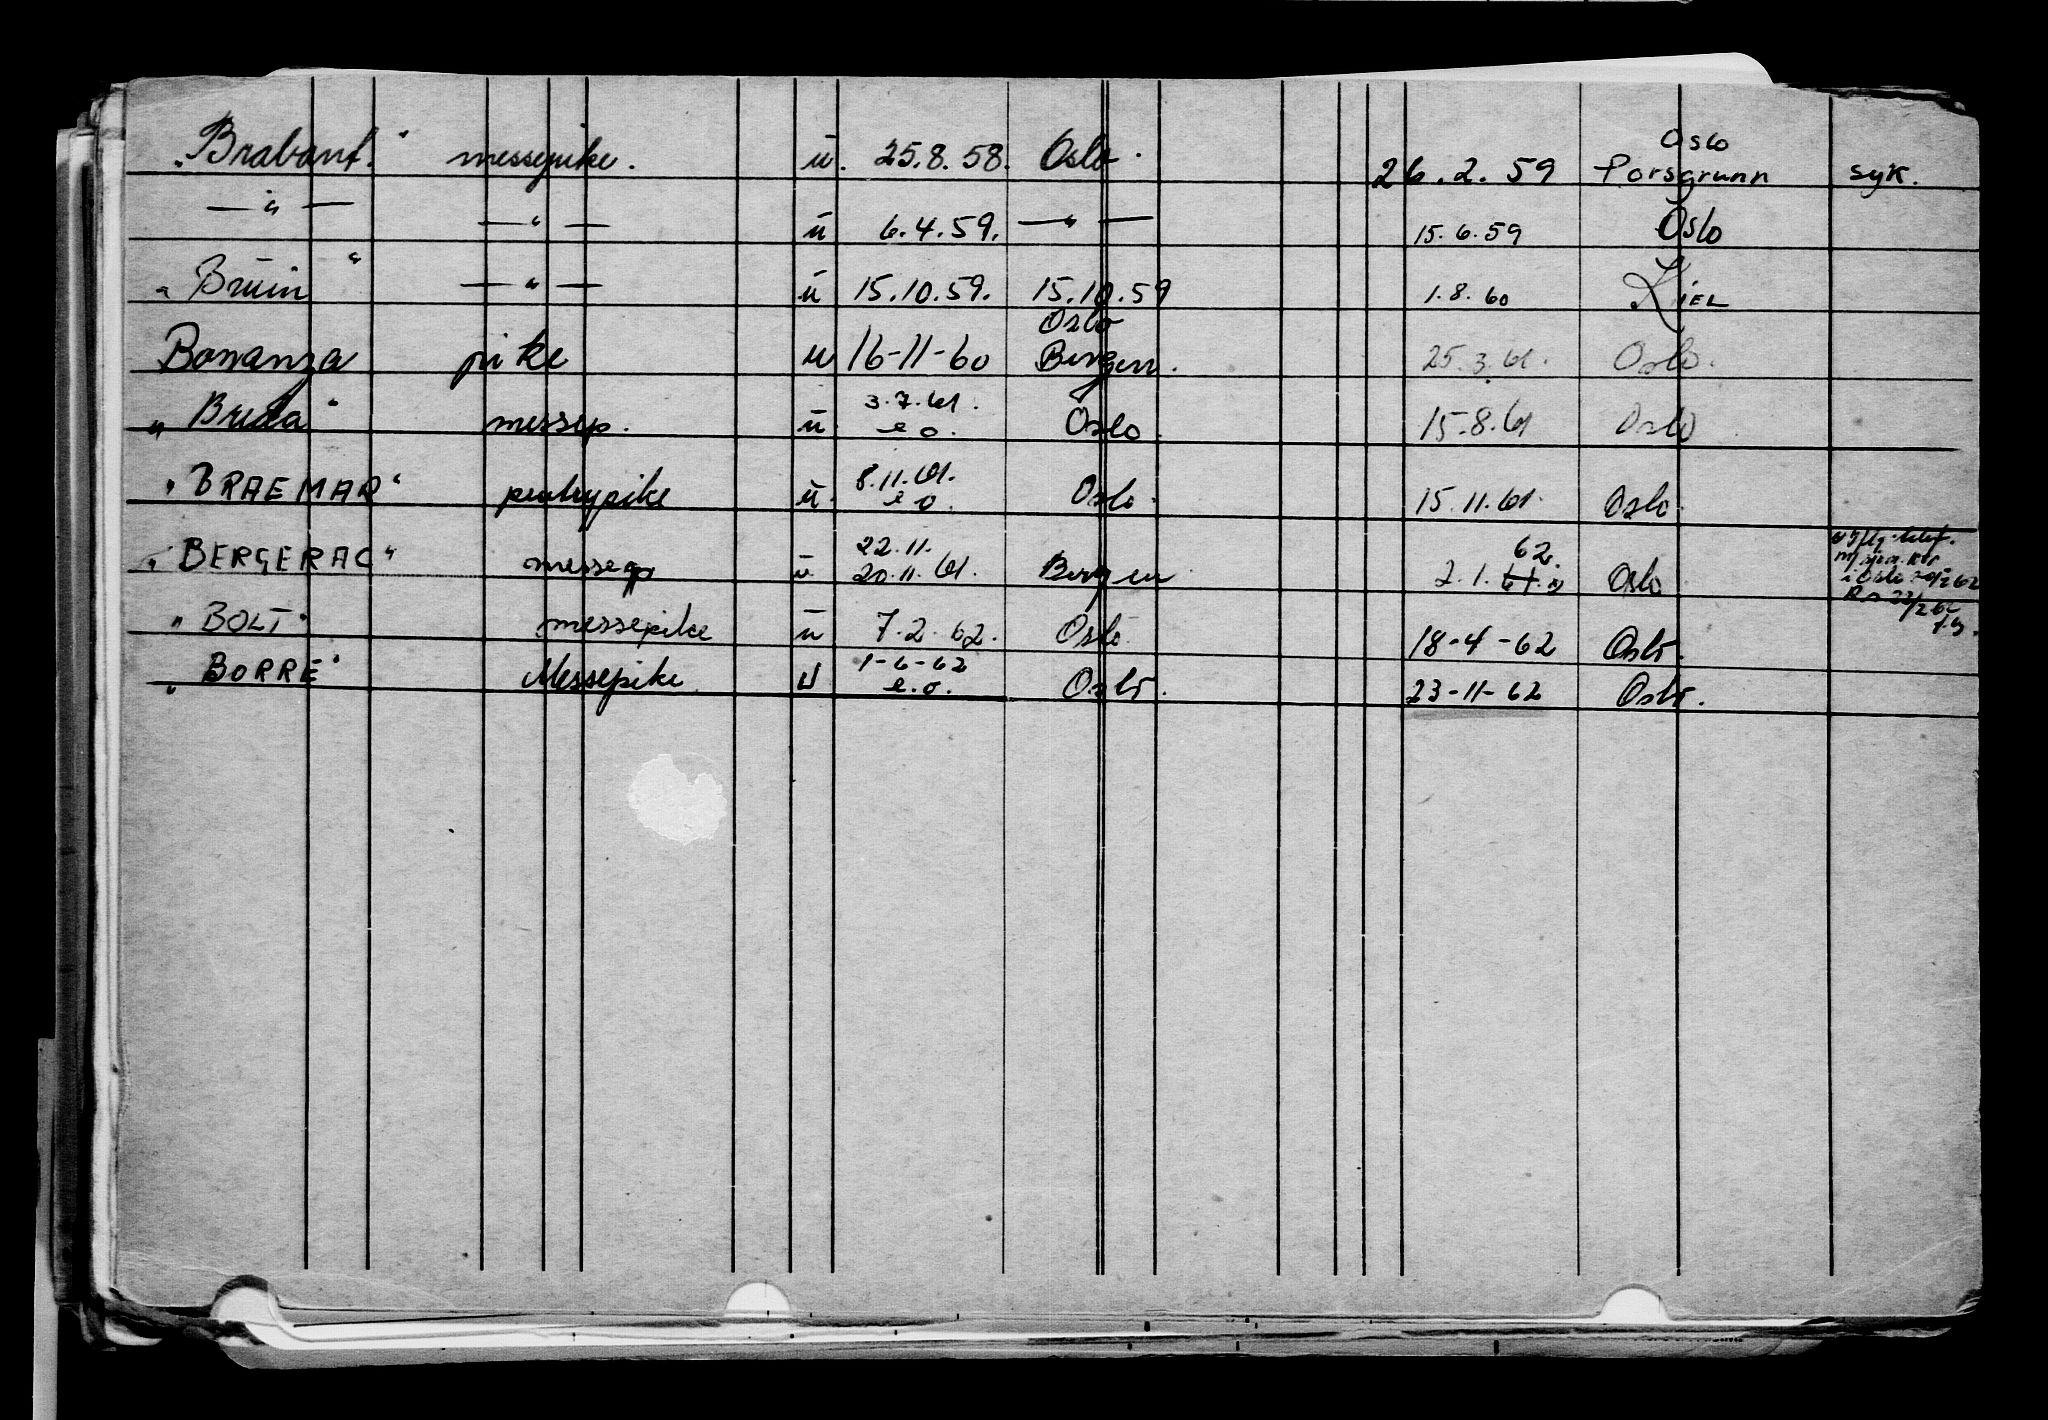 Oslo
"Brabant." messepike. u. 25.8.58. Oslo. 26.2.59 Porsgrunn syk.
—"— —"— u. 6.4.59. —"— 15.6.59 Oslo
"Bruin" —"— u 15.10.59. 15.10.59 1.8.60 Kiel
Oslo
Bonanza pike u 16-11-60 Bergen. 25.3.61. Oslo.
3.7.61.
"Breda" messep. u. e o. Oslo. 15.8.61 Oslo
8.11.61.
"BRAEMAR" pentrypike u. e o. Oslo. 15.11.61. Oslo.
22.11. 62.
"BERGERAC" messep u. 20.11.61. Bergen 2.1. 61. Oslo
i Oslo
"BOLT" messepike u 7.2.62. Oslo. 18-4-62 Oslo.
1-6-62
"BORRE" Messepike U e.o. Oslo. 23-11-62 Oslo.